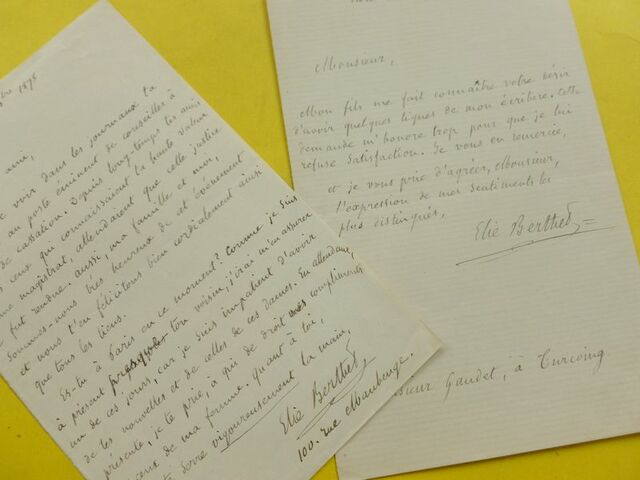 1878
ami,
voir dans les journaux ta
au poste éminent de conseiller à
de cassation. Depuis longtemps tes amis
ceux qui connaissaient ta haute valeur
magistrat, attendaient que cette justice
fut rendue. aussi, ma famille et moi,
Sommes-nous très heureux de cet événement
et nous t'en félicitons bien cordialement ainsi
que tous les tiens.
Es-tu à Paris en ce moment? Comme je suis
à présent presque ton voisin, j'irai m'en assurer
un de ces jours, car je suis impatient d'avoir
de tes nouvelles et de celles de ces Dames. En attendant,
présente, je te prie, à qui de droit mes compliments
ceux de ma femme. quant à toi,
te serre vigoureusement la main,
Elie Berthet
100. rue Maubeuge.
Monsieur,
Mon fils me fait connaître votre désir
d'avoir quelques lignes de mon écriture. Cette
demande m'honore trop pour que je lui
refuse satisfaction. Je vous en remercie,
et je vous prie d'agréer, Monsieur,
l'expression de mes sentiments les
plus distingués,
Elie Berthet
sieur Gaudet, à Turcoing.